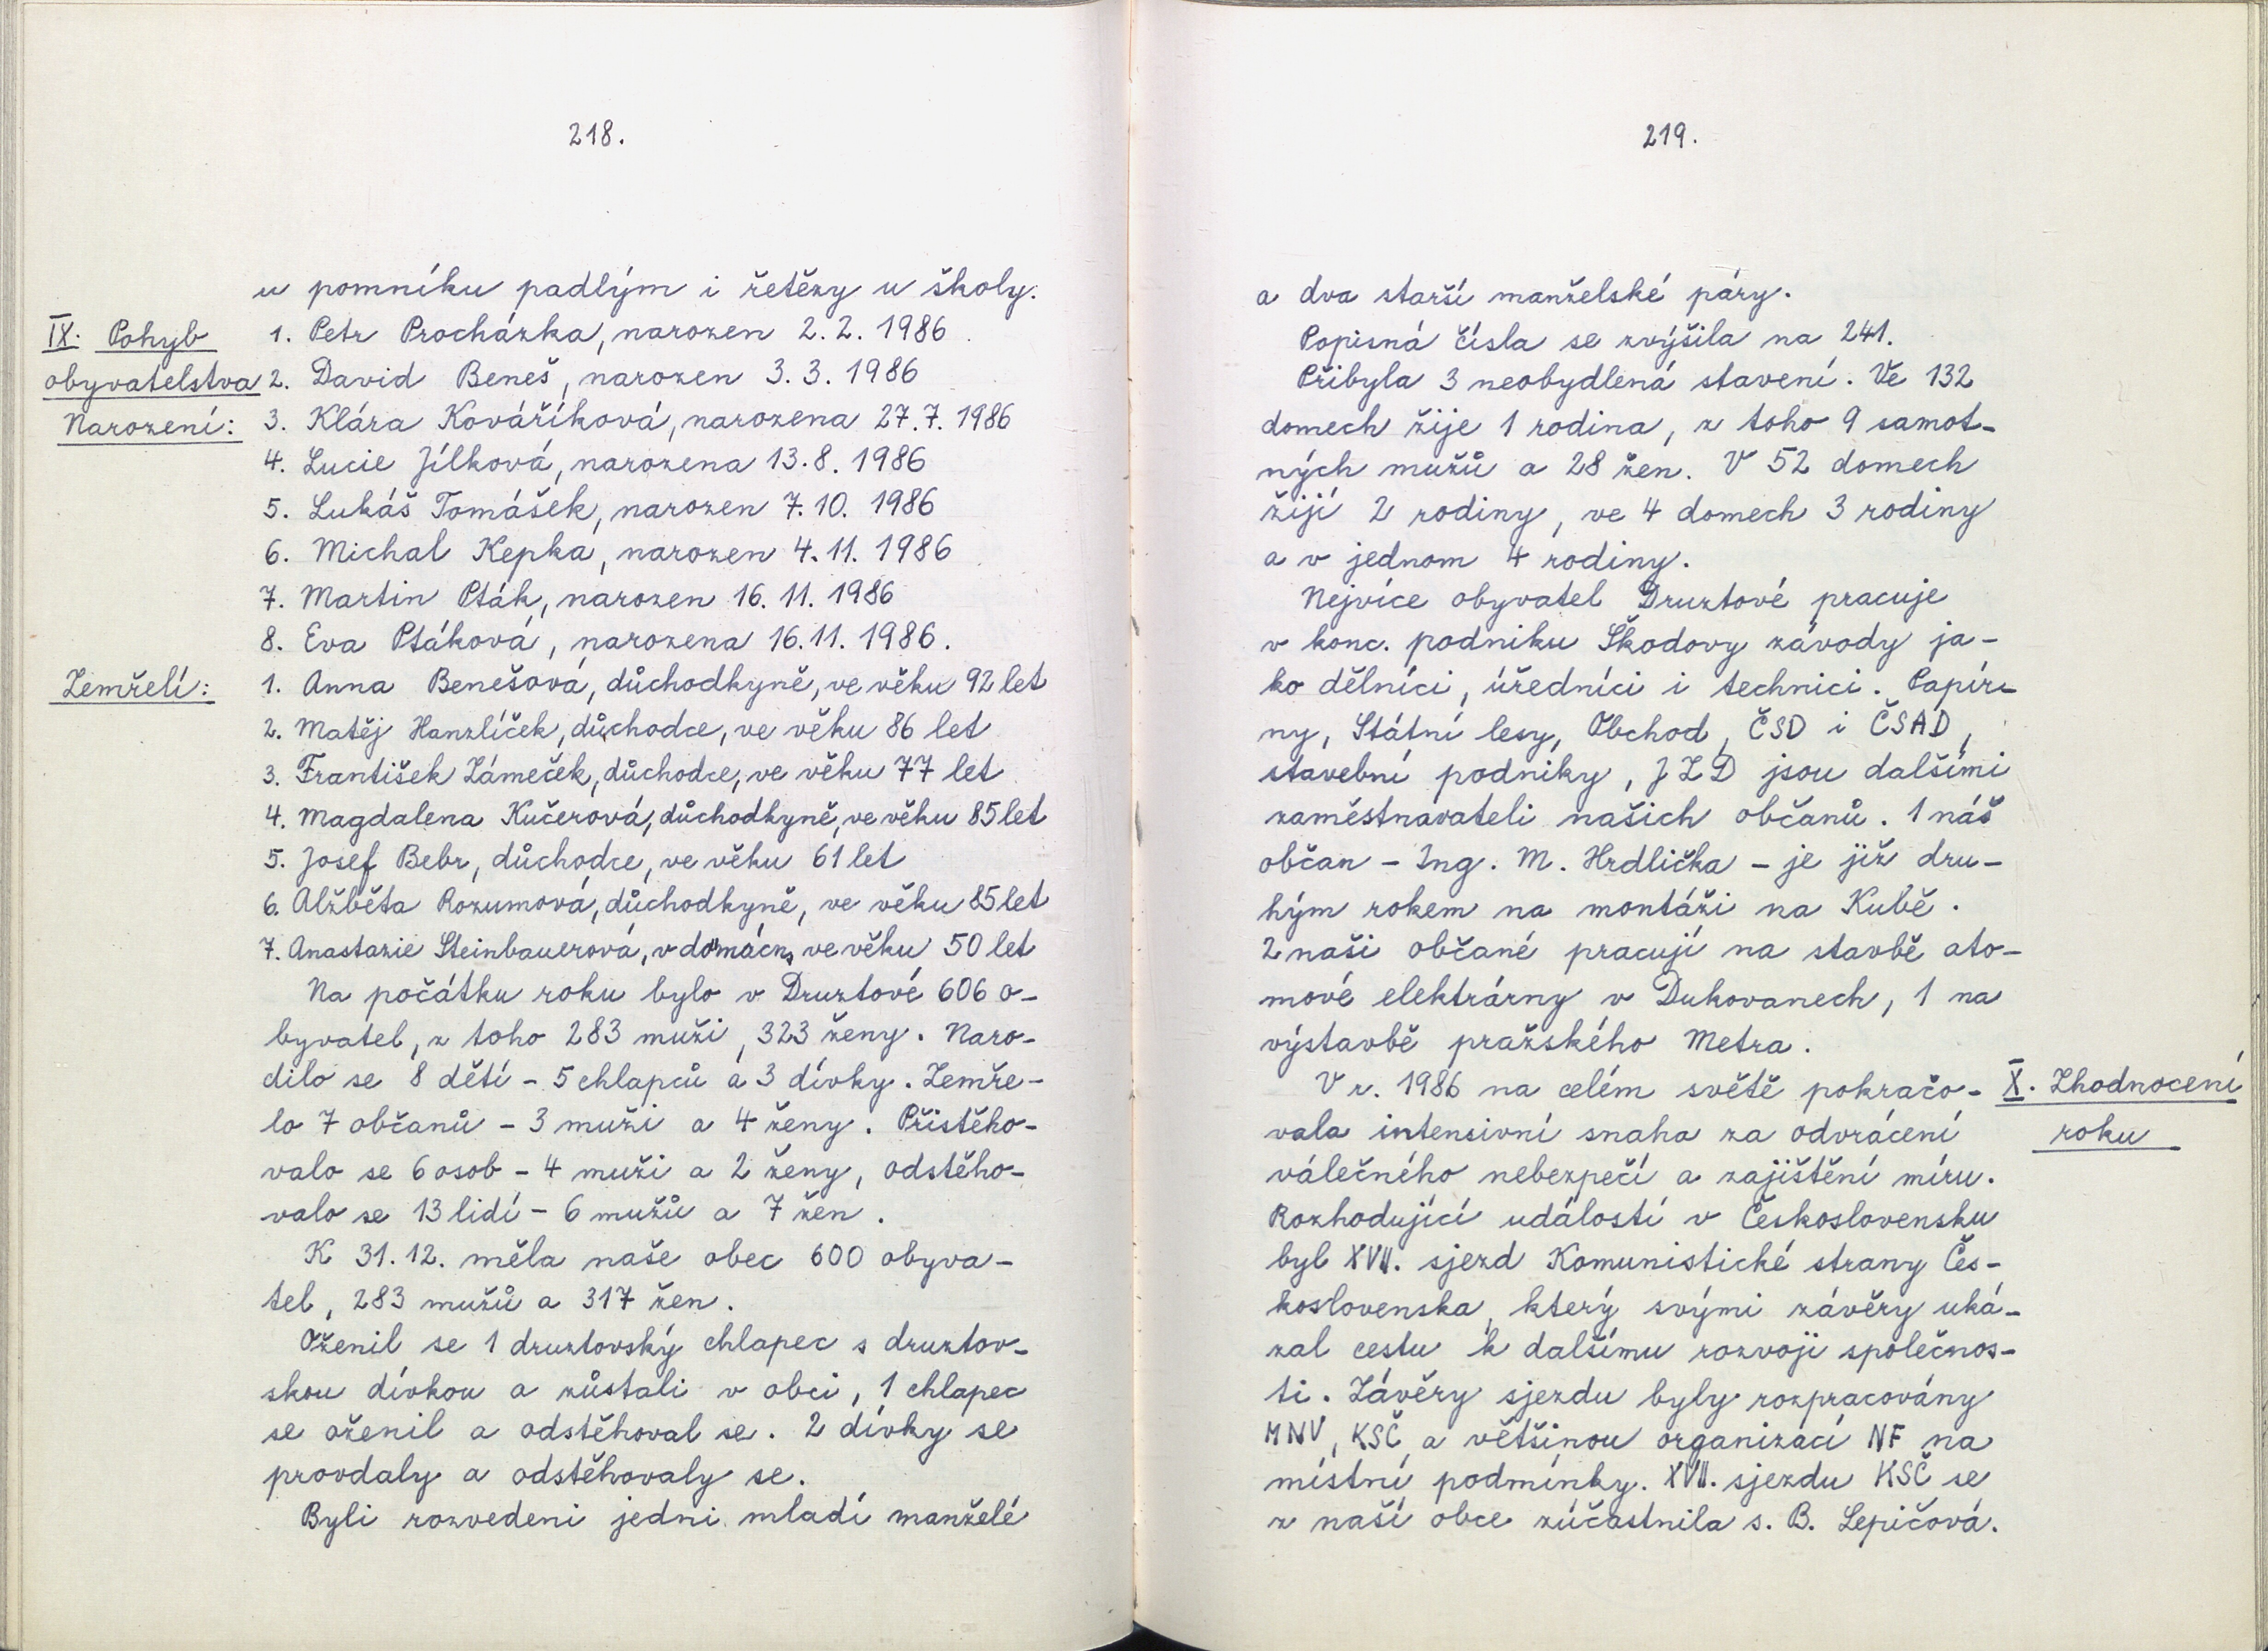 218.
u pomníku padlým i řetězy u školy.
IX. Pohyb
obyvatelstva
Narození:
1. Petr Procházka, narozen 2. 2. 1986
2. David Beneš, narozen 3. 3. 1986
3. Klára Kováříková, narozena 27. 7. 1986
4. Lucie Jílková, narozena 13. 8. 1986
5. Lukáš Tomášek, narozen 7. 10. 1986
6. Michal Kepka, narozen 4. 11. 1986
7. Martin Pták, narozen 16. 11. 1986
8. Eva Ptáková, narozena 16. 11. 1986.
Zemřelí:
1. Anna Benešová, důchodkyně, ve věku 92 let
2. Matěj Hanzlíček, důchodce, ve věku 86 let
3. František Zámeček, důchodce, ve věku 77 let
4. Magdalena Kučerová, důchodkyně, ve věku 85 let
5. Josef Bebr, důchodce, ve věku 61 let
6. Alžběta Rozumová, důchodkyně, ve věku 85 let
7. Anastazie Steinbauerová, v domácn, ve věku 50 let
Na počátku roku bylo v Druztové 606 o-
byvatel, z toho 283 muži, 323 ženy. Naro-
dilo se 8 dětí - 5 chlapců a 3 dívky. Zemře-
lo 7 občanů - 3 muži a 4 ženy. Přistěho-
valo se 6 osob - 4 muži a 2 ženy, odstěho-
valo se 13 lidí - 6 mužů a 7 žen.
K 31. 12. měla naše obec 600 obyva-
tel, 283 mužů a 317 žen.
Oženil se 1 druztovský chlapec s druztov-
skou dívkou a zůstali v obci, 1 chlapec
se oženil a odstěhoval se. 2 dívky se
provdaly a odstěhovaly se.
Byli rozvedeni jedni mladí manželé
219.
a dva starší manželské páry.
Popisná čísla se zvýšila na 241.
Přibyla 3 neobydlená stavení. Ve 132
domech žije 1 rodina, z toho 9 samot-
ných mužů a 28 žen. V 52 domech
žijí 2 rodiny, ve 4 domech 3 rodiny
a v jednom 4 rodiny.
Nejvíce obyvatel Druztové pracuje
v konc. podniku Škodovy závody ja-
ko dělníci, úředníci i technici. Papír-
ny, Státní lesy, Obchod, ČSD i ČSAD,
stavební podniky, JZD jsou dalšími
zaměstnavateli našich občanů. 1 náš
občan - Ing. M. Hrdlička - je již dru-
hým rokem na montáži na Kubě.
2 naši občané pracují na stavbě ato-
mové elektrárny v Dukovanech, 1 na
výstavbě pražského Metra.
X. Zhodnocení
roku
V r. 1986 na celém světě pokračo-
vala intensivní snaha za odvrácení
válečného nebezpečí a zajištění míru.
Rozhodující událostí v Československu
byl XVII. sjezd Komunistické strany Čes-
koslovenska, který svými závěry uká-
zal cestu k dalšímu rozvoji společnos-
ti. Závěry sjezdu byly rozpracovány
MNV, KSČ a většinou organizací NF na
místní podmínky. XVII. sjezdu KSČ se
z naší obce zúčastnila s. B. Lepičová.